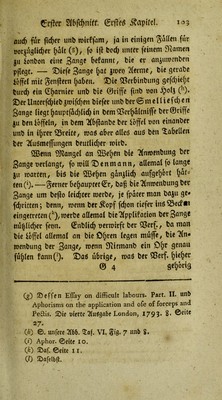 Erster Abschnitt. Erstes Kapitel. 103
auch für sicher und wirksam, ja in einigen Fällen für
vorzüglicher hält (g), so ist doch unter seinem Namen
zu London eine Zange bekannt, die er anzuwenden
pflegte. — Diese Zange hat zwey Aerme, die gerade
Löffel mit Fenstern haben. Die Verbindung geschieht
durch ein Charnier und die Griffe sind von Holz (h).
Der Unterschied zwischen dieser und der Smellieschen
Zange liegt hauptsächlich in dem Verhältnisse der Griffe
zu den Löffeln, in dem Abstande der Löffel von einander
und in ihrer Breite, was aber alles aus den Tabellen
der Ausmessungen deutlicher wird.
Wenn Mangel an Wehen die Anwendung der
Zange verlangt, so will Denmann, allemal so lange
zu warten, bis die Wehen gänzlich aufgehört hät-
ten (i). — Ferner behauptet Er, daß die Anwendung der
Zange um desto leichter werde, je später man dazu ge-
schritten; denn, wenn der Kopf schon tiefer ins Becken
eingetreten (k), werde allemal die Applikation der Zange
nützlicher seyn. Endlich verwirft der Verf., da man
die Löffel allemal an die Ohren legen müsse, die An-
wendung der Zange, wenn Niemand ein Ohr genau
fühlen kann (l). Das übrige, was der Verf. hieher
G 4 gehörig
(g) Dessen Essay on difficult labours. Part. II. und
Aphorisms on the application and ose of forceps and
Pectis. Die vierte Ausgabe London, 1793. 8. Seite
27.
(h) S. unsere Abb. Taf. VI. Fig. 7 und 8.
(i) Aphor. Seite 10.
(k) Das. Seite 11.
(l) Daselbst.